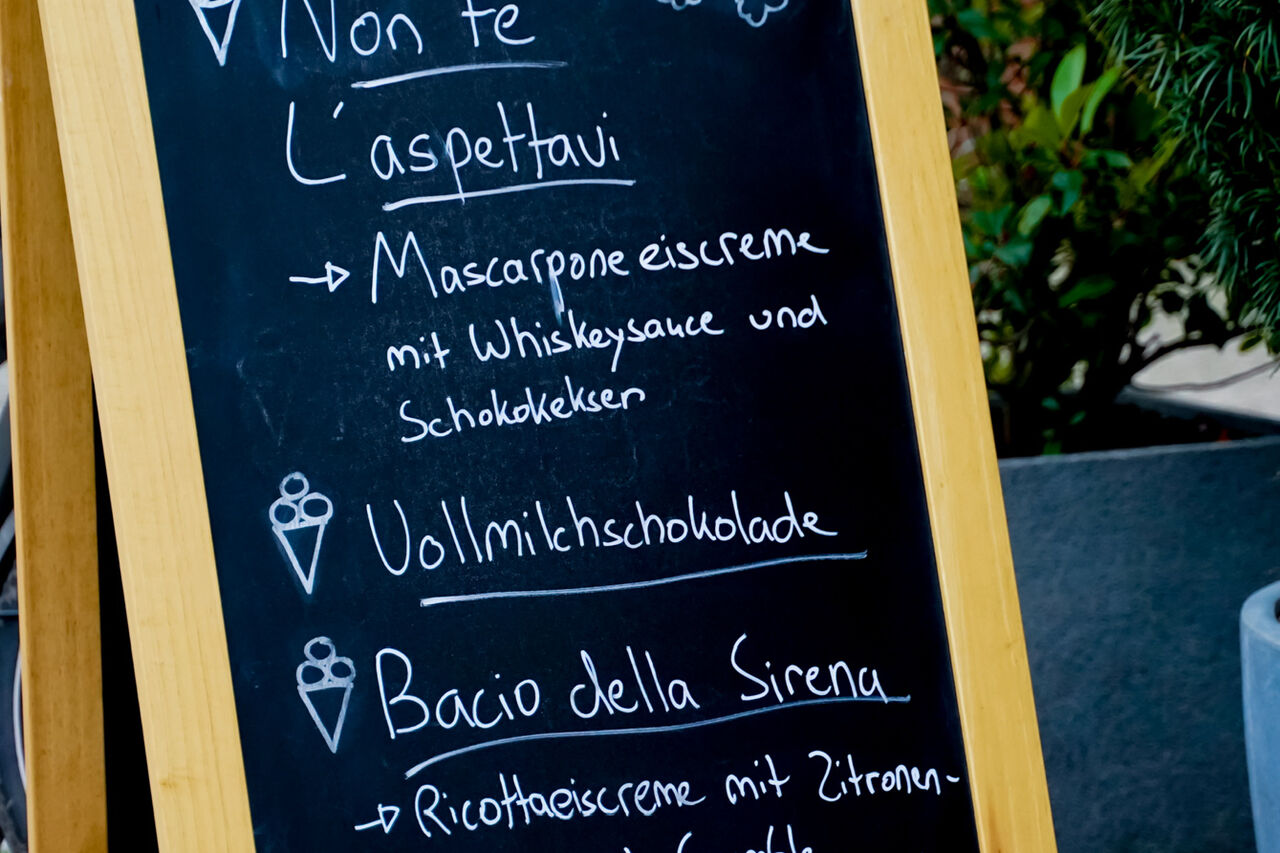 Non te
L'aspettavi
Mascarpone eiscreme
mit Whiskeysauce und
Schokokeksen
Vollmilchschokolade
Bacio della Sirena
Ricottaeiscreme mit Zitronen-